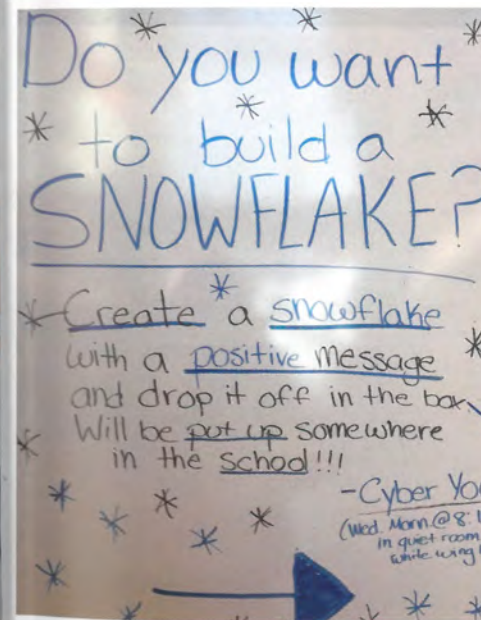 Do you want
to build a
SNOWFLAKE?
Create a snowflake
with a positive message
and drop it off in the box
Will be put up somewhere
in the school!!!
-Cyber
(Wed. Morn. @ 8:
in quiet room
while wing